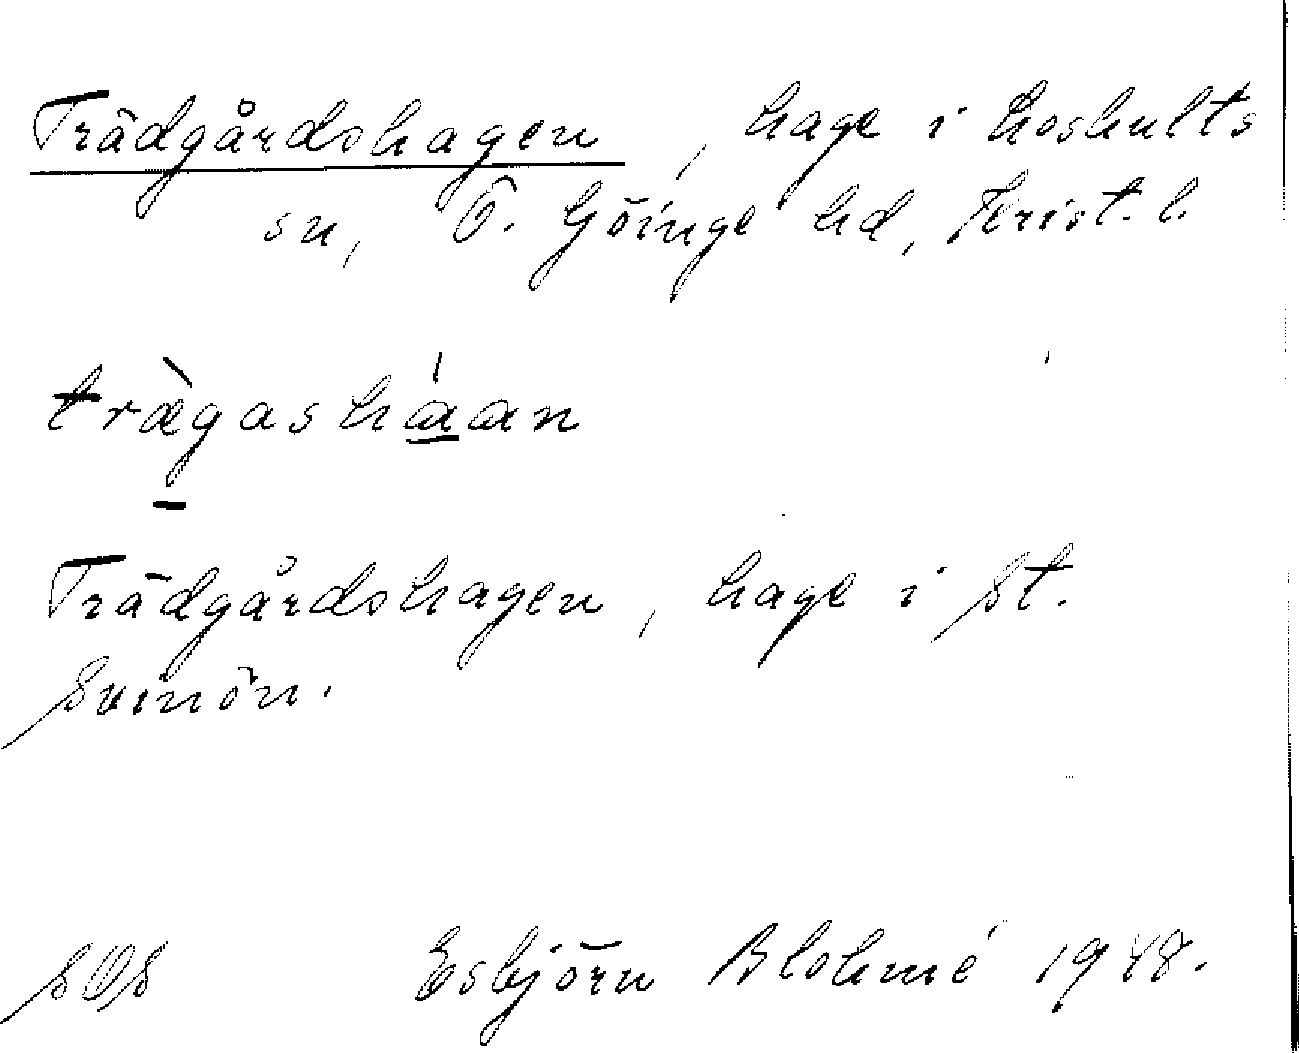 Trädgårdshagen, hage i Loshults
sn, Ö. Göinge hd, Krist. l.
trǽgasháan
Trädgårdshagen, hage i St.
Svinön.
SOS Esbjörn Blohmé 1948.